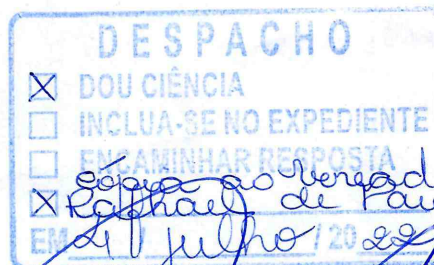 DESPACHO
DOU CIÊNCIA
INCLUA-SE NO EXPEDIENTE
ENCAMINHAR RESPOSTA
cópia ao
Raphael de
EM 21 julho / 20 22